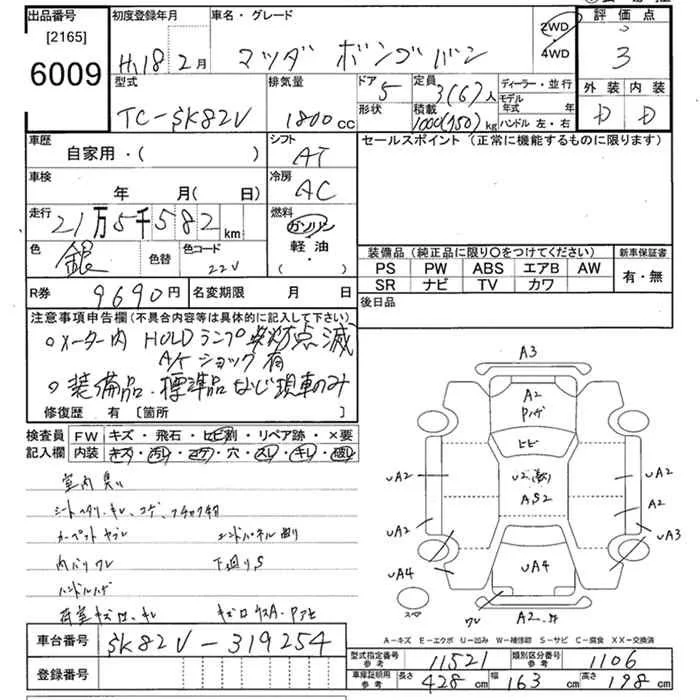 出品番号 初度登録年月 車名・グレード 評価点
[2165]
6009
H.18 2月 マツダ ボンゴバン 2WD・4WD 3
型式 排気量 ドア 定員 ディーラー・並行 外装 内装
TC-SK82V 1800cc 5 3(6)人 モデル年式 年 D D
形状 積載 1000(750)kg ハンドル 左・右
車歴 シフト セールスポイント(正常に機能するものに限ります)
自家用・( ) AT
車検 冷房
年 月( 日) AC
走行 燃料
21万5千582km ガソリン
軽油・
( )
色 色替 色コード
銀 22V
装備品(純正品に限り〇をつけてください) 新車保証書
PS PW ABS エアB AW 有・無
SR ナビ TV カワ
R券 9690円 名変期限 月 日 後日品
注意事項申告欄(不具合内容等は具体的に記入して下さい)
○メーター内 HOLDランプ 点滅
ショック有
○装備品・標準品など現車のみ
修復歴 有 [箇所 ]
検査員 FW キズ・飛石・ヒビ割・リペア跡・×要
記入欄 内装 キズ・汚レ・コゲ・穴・スレ・キレ・破レ
室内臭い
カーペットヤブレ エンドパネル曲り
内バリワレ 下廻りS
ハンドルハゲ
A3
A2
ヒビ
A2 A2
AS2 A2
A2 A3
A4 A4
スペア ワレ A2
A-キズ E-エクボ U-凹み W-補修跡 S-サビ C-腐食 XX-交換済
車台番号 SK82V-319254
登録番号
型式指定番号 参考 11521 類別区分番号 参考 1106
車庫証明用 参考 長さ 428cm 幅 163cm 高さ 198cm